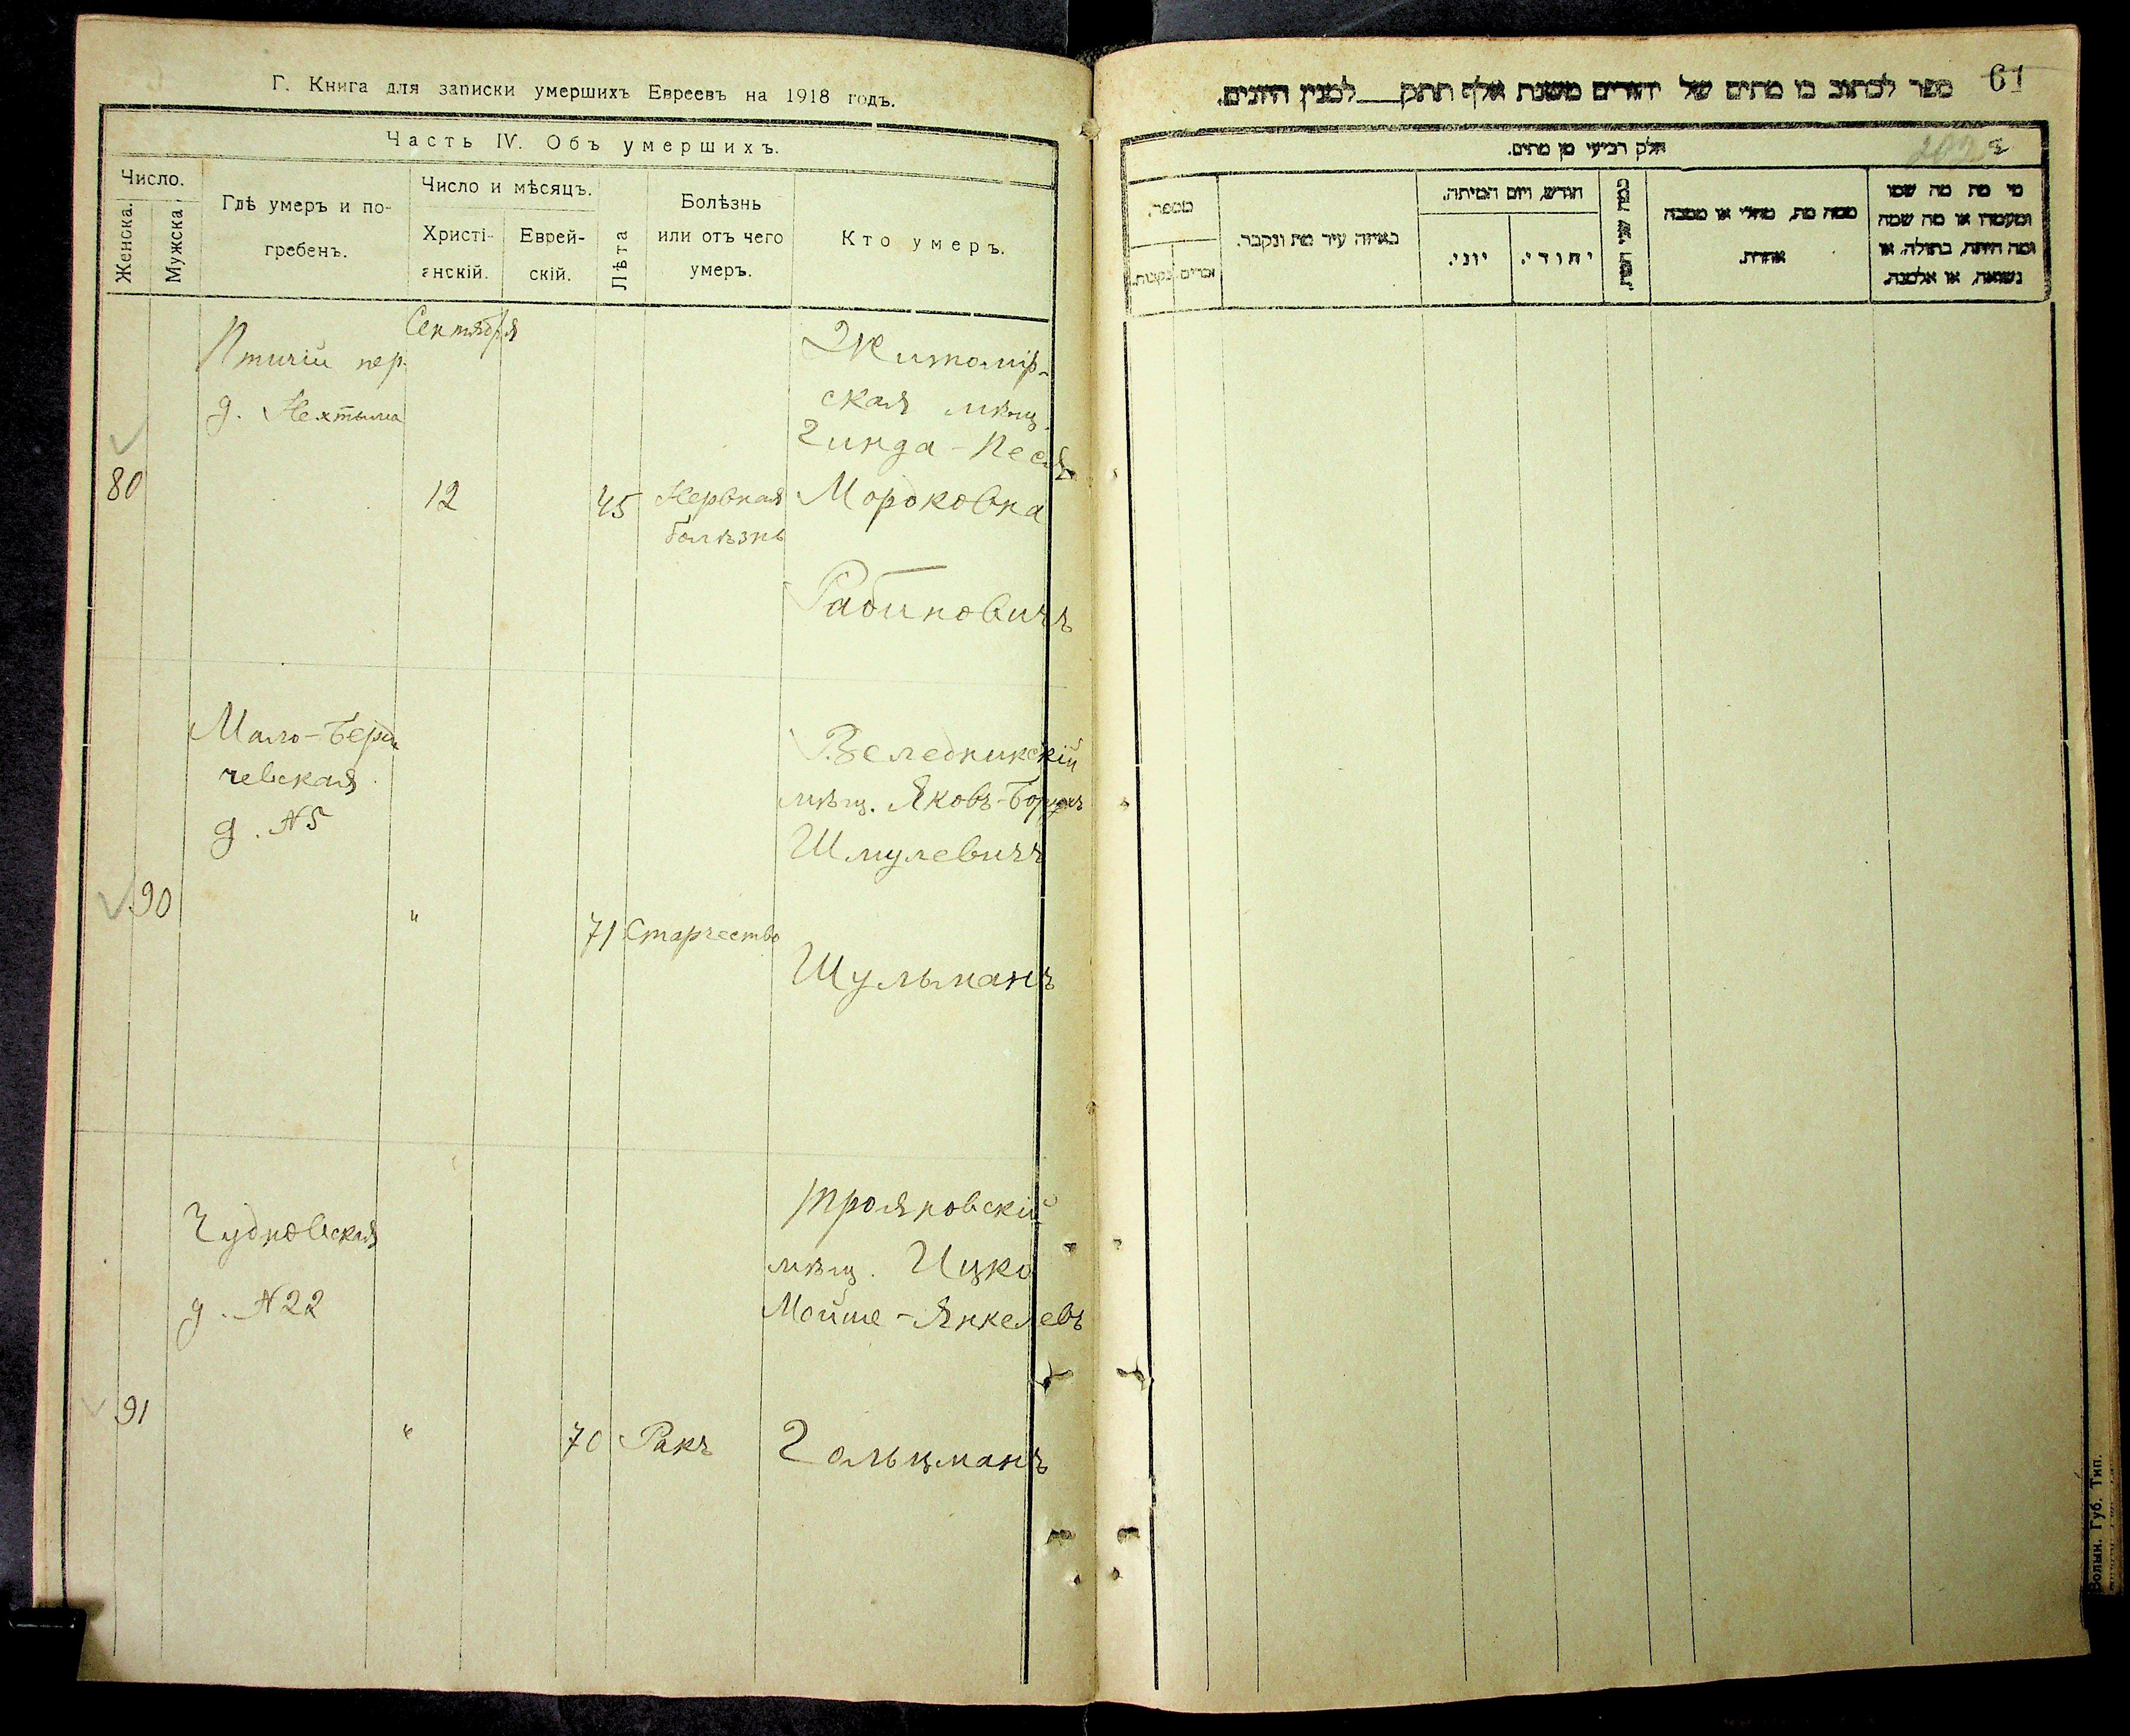 Г. Книга для записки умершихъ Евреевъ на 1918 годъ.
Часть IV. Объ умершихъ.
Число.
Женска.
Мужска.
Гдѣ умеръ и по-
гребенъ.
Число и мѣсяцъ.
Христі-
анскій.
Еврей-
скій.
Лѣта
Болѣзнь
или отъ чего
умеръ.
Кто умеръ.
Сентября
Птичій пер.
д. Нехтыма
80
12
45
Нервная
болѣзнь
Житомір-
ская мѣщ.
Гинда-Песя
Мороковна
Рабиновичъ
Мало-Берди
чевская
д. №5
90
"
71
Старчество
Веледникскій
мѣщ. Яковъ-Борухъ
Шмулевичъ
Шульманъ
Чудновская
д. №22
91
"
70
Ракъ
Трояновскій
мѣщ. Ицко
Мойше-Янкелевъ
Гольцманъ
61
ספר לכתוב בו מתים של יהודים משנת אלף תתק למנין היונים.
חלק רביעי מן מתים.
מספר.
זכרים
נקבות.
באיזה עיר מת ונקבר.
חודש, ויום המיתה.
יוני.
יהודי.
כמה שני המת.
ממה מת, מחלי או מסבה
אחרת.
מי מת מה שמו
ומעמדו או מה שמה
ומה היתה, בתולה, או
נשואה, או אלמנה.
Волын. Губ. Тип.